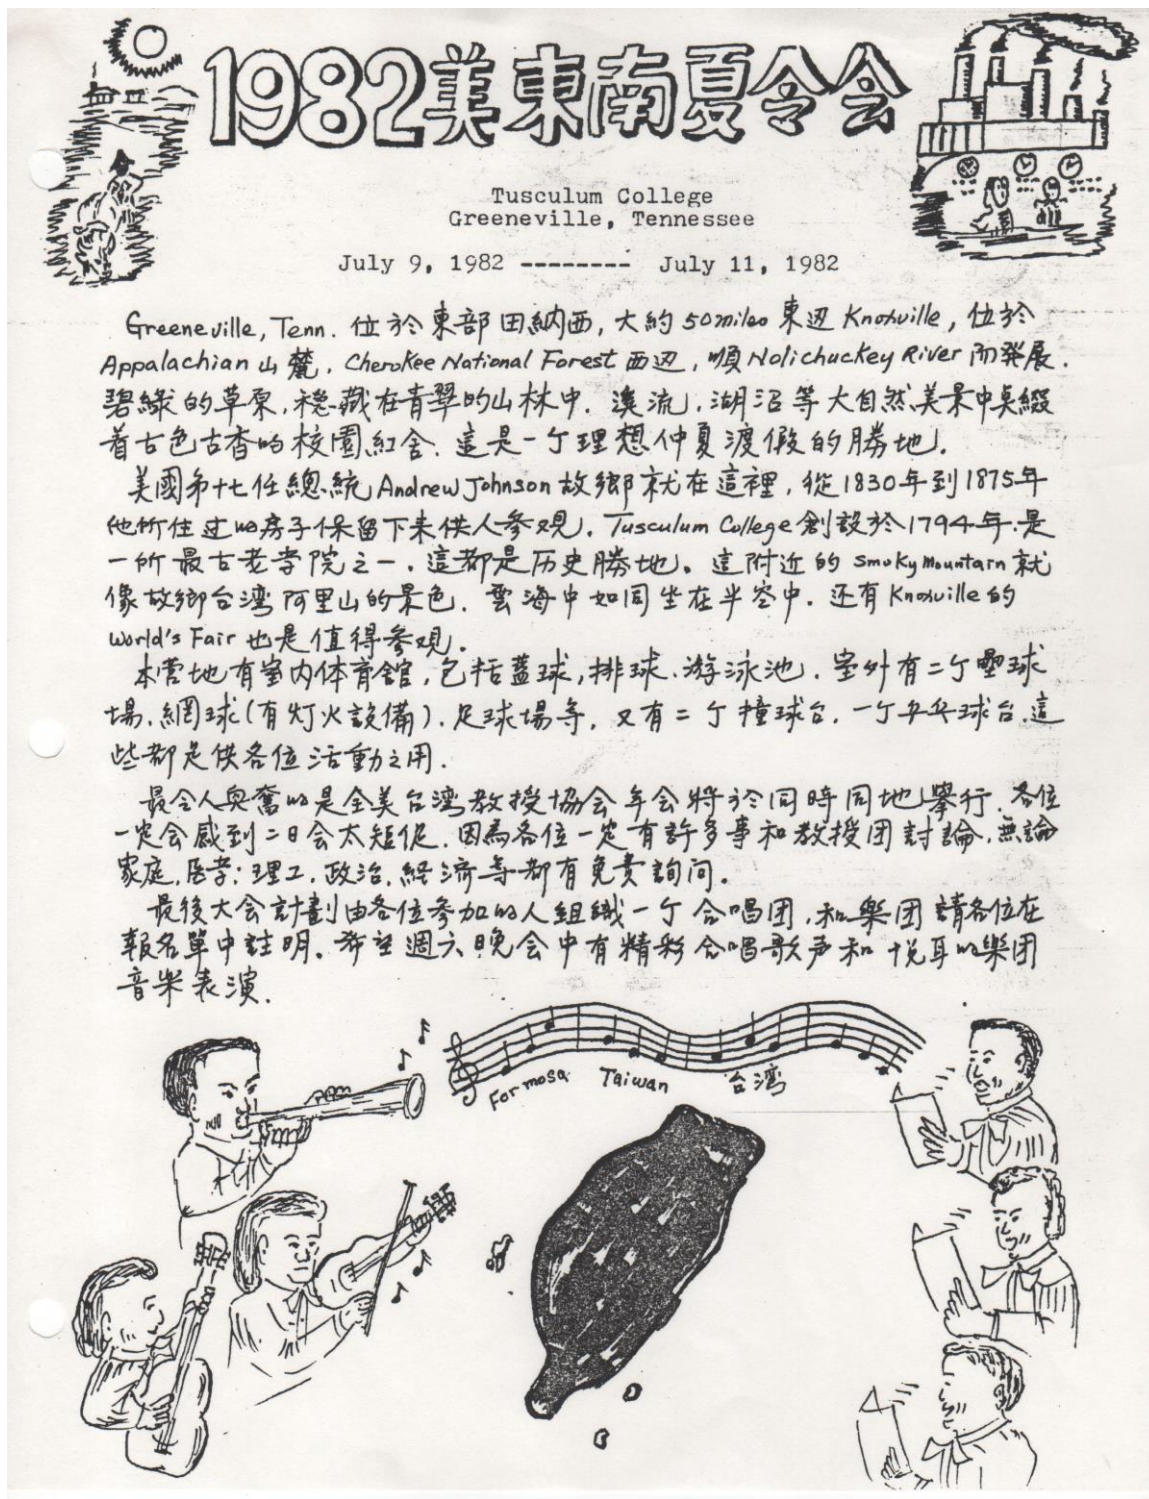 1982美東南夏令会
Tusculum College
Greeneville, Tennessee
July 9, 1982 -------- July 11, 1982
Greeneville, Tenn. 位於東部田納西, 大約50miles東边Knoxville, 位於
Appalachian山麓, Cherokee National Forest西边, 順Nolichuckey River而發展.
碧綠的草原, 穩藏在青翠的山林中. 溪流, 湖沼等大自然美景中奌綴
着古色古香的校園紅舍. 這是一个理想仲夏渡假的勝地.
美國第十七任總統Andrew Johnson故鄉就在這裡, 從1830年到1875年
他所住过的房子保留下来供人参观. Tusculum College創設於1794年.是
一所最古老学院之一. 這都是历史勝地. 這附近的Smoky Mountain就
像故鄉台湾阿里山的景色. 雲海中如同坐在半空中. 还有Knoxville的
World's Fair也是值得参观.
本营地有室内体育館, 包括蓝球, 排球. 游泳池. 室外有二个壘球
場, 網球(有灯火設備). 足球場等, 又有二个撞球台. 一个乒乓球台. 這
些都是供各位活動之用.
最令人興奮的是全美台湾教授協会年会將於同時同地舉行. 各位
一定会感到二日会太短促. 因為各位一定有許多事和教授团討論. 無論
家庭, 医学; 理工, 政治, 経済等都有免費詢问.
最後大会計劃由各位参加的人組織一个合唱团, 和樂团請各位在
報名單中註明. 希望週六晚会中有精彩合唱歌声和悅耳的樂团
音樂表演.
Formosa Taiwan 台湾